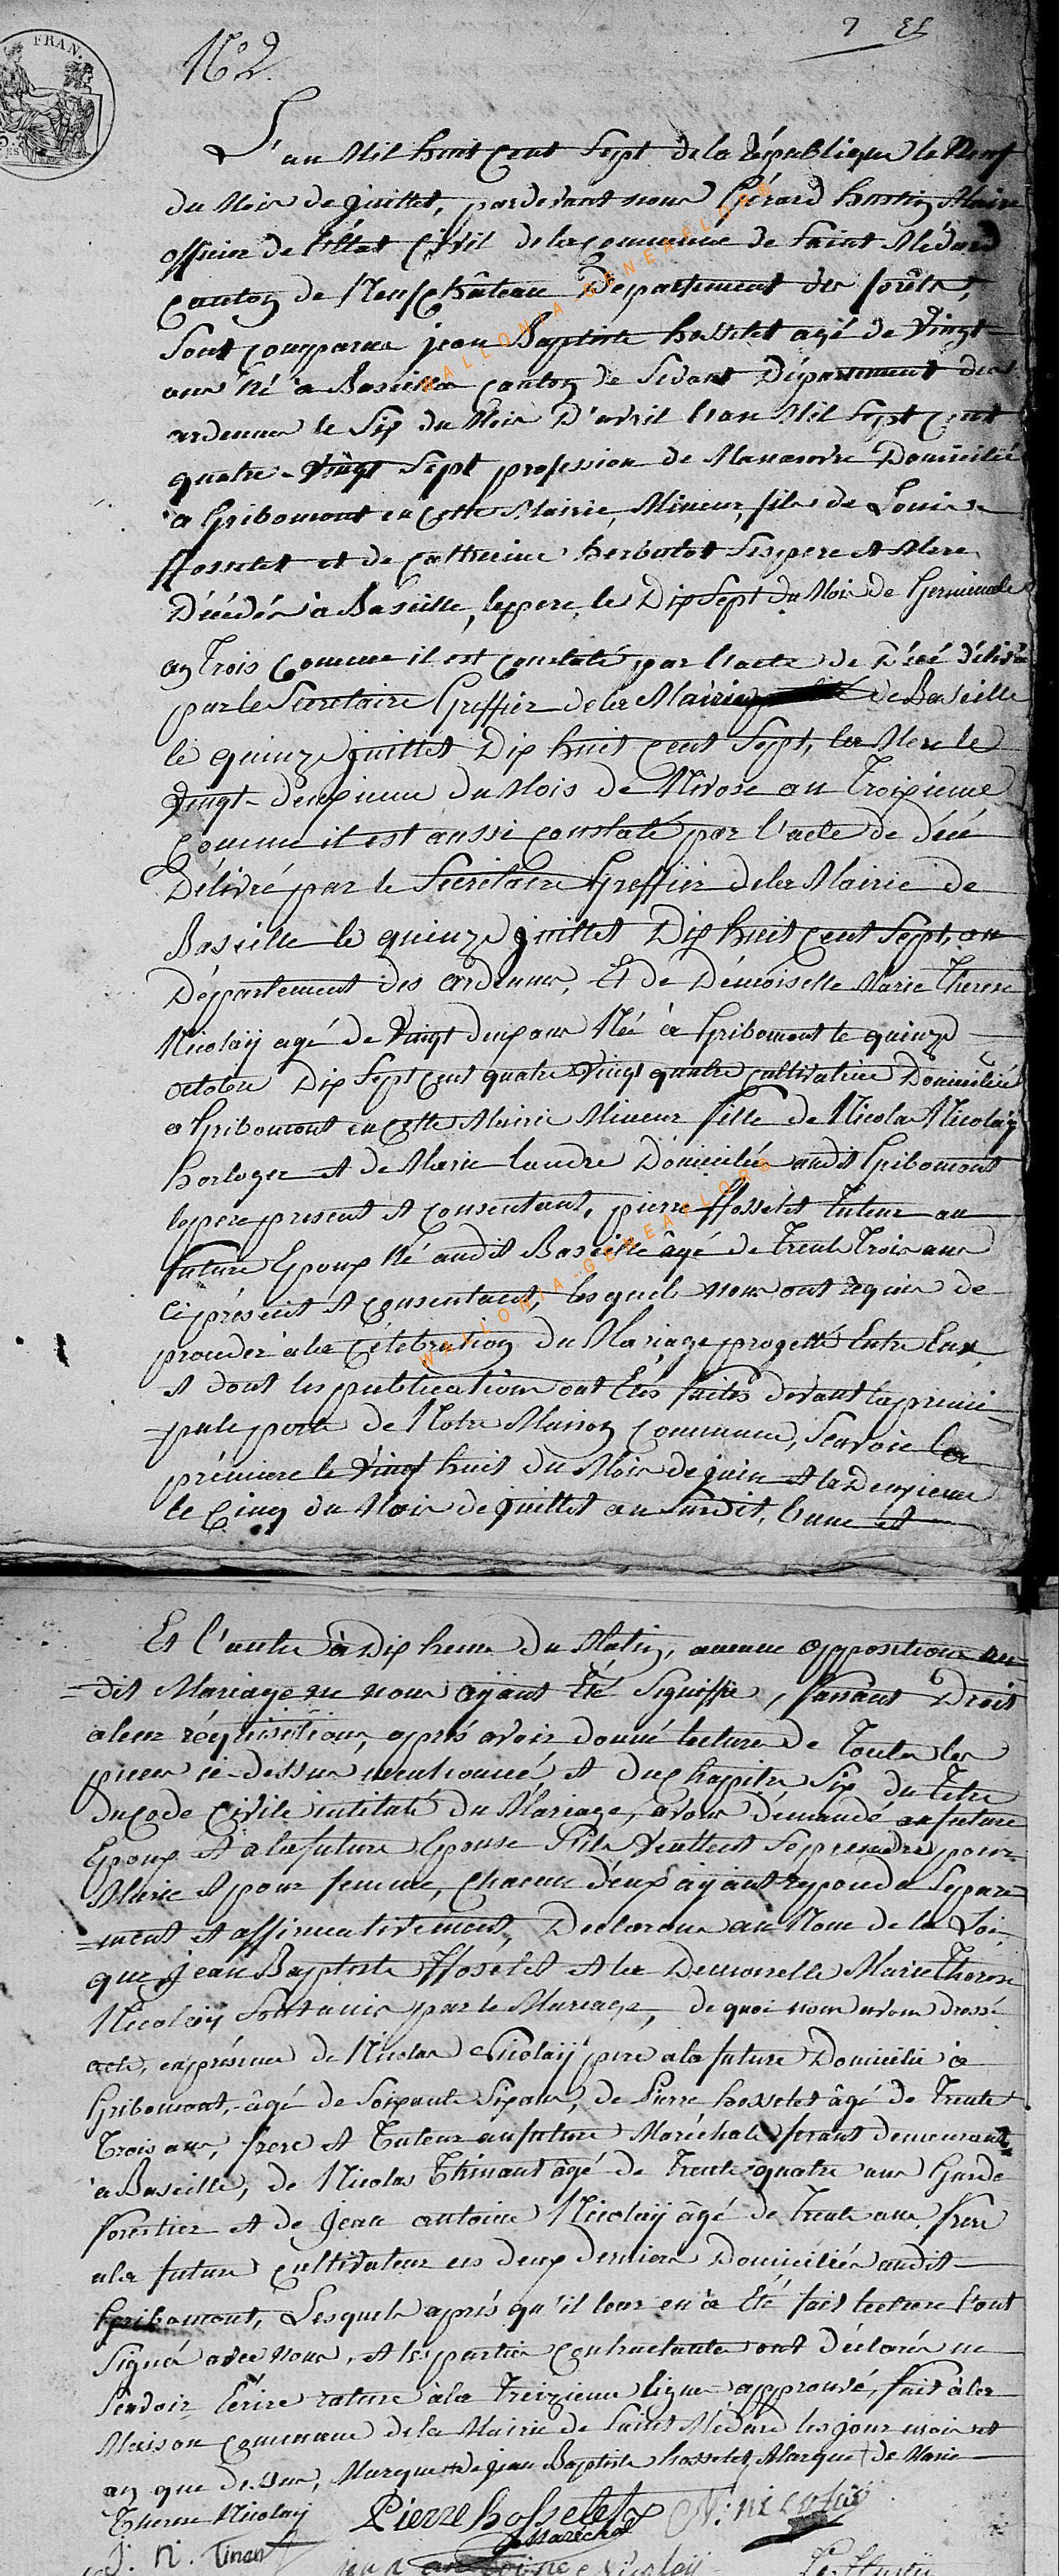 FRAN.
N° 2
L'an Mil huit cent Sept de la république le Neuf
du Mois de juillet, pardevant nous Gérard hustin Maire
officier de l'état Civil de la commune de Saint Médard
canton de Neufchâteau Département des forêts,
Sont comparus jean Baptiste hosselet agé de Vingt
ans né à Baseille canton de Sedant Département des
ardennes le Six du Mois D'avril l'an Mil Sept cent
quatre-Vingt Sept profession de Manœuvre Domicilié
à Gribomont en cette Mairie, Mineur, fils de Louis
hosselet et de Catherine Ses pere et Mere
Décédés à Baseille, le pere le Dix Sept du Mois de Germinale
an Trois Comme il est constaté par l'acte de Décé délivré
par le Secretaire Greffier de la Mairie de Baseille
le quinze juillet Dix huit cent Sept, la Mere le
Vingt-deuxieme du Mois de Nivose an Troixieme
Comme il est aussi constaté par l'acte de décé
Délivré par le Secrétaire Greffier de la Mairie de
Baseille le quinze juillet Dix huit cent Sept, au
Département des ardennes, Et de Démoiselle Marie Therese
Nicolaÿ agé de Vingt deux ans Née à Gribomont le quinze
octobre Dix Sept cent quatre Vingt quatre cultivatrice Domiciliée
à Gribomont en cette Mairie Mineur fille de Nicolas Nicolaÿ
horloger et de Marie Domiciliés audit Gribomont
le pere present et consentant, pierre hosselet Tuteur au
future Epoux Né audit Baseille âgé de Trente Trois ans
ci présent et consentant, lesquels nous ont requis de
procéder à la Célébration du Mariage progetté Entre Eux
et dont les publications ont Etés faites devant la princi
=pale porte de Notre Maison Commune, Scavoir la
prémiere le Vingt huit du Mois de juin et la Deuxieme
le Cinq du Mois de juillet an Surdit, l'une et
Et l'autre à dix heure du Matin, aucune opposition au
=dit Mariage ne nous ayant Eté Signiffié, faisant Droit
à leur réquisition, aprés avoir donné lecture de Toutes les
pieces ci-dessus mentionnée et du chapitre Six du Titre
du code Civile intitulé du Mariage, avons démandé au future
Epoux et à la future Epouse S'ils veullent Se prendre pour
Marie et pour femme, chacun d'eux ayant repondu Separé
=ment et affirmativement, Declarons au Nom de la Loi
que Jean Baptiste hoselet et la Demoiselle Marie Therese
Nicolaÿ Sont unis par le Mariage, de quoi nous avons dressé
acte, en présence de Nicolas Nicolaÿ pere à la future Domicilié à
Gribomont, âgé de Soixante Six ans, de Pierre hosselet âgé de Trente
Trois ans, frere et Tuteur au future Maréchale ferant demeurant
à Baseille, de Nicolas Thinant âgé de Trente quatre ans Garde
forestier et de Jean antoine Nicolaÿ âgé de Trente ans frere
à la future cultivateur les deux derniers Domiciliés audit
Gribomont, Lesquels aprés qu'il leur en a Eté fait lecture l'ont
Signé avec Nous, et les parties contractantes ont déclarés ne
Scavoir Ecrire rature à la Treizieme ligne approuvé, fait à la
Maison commune de la Mairie de Saint Médard les jour mois et
an que dessus, Marque + de jean Baptiste hosselet, Marque + de Marie
Therese Nicolaÿ Pierre hosselet N: nicolaÿ
Maréchal
J. N. Tinant
jean antoine nicolaÿ
WALLONIA-GENEAFLORE
WALLONIA-GENEAFLORE